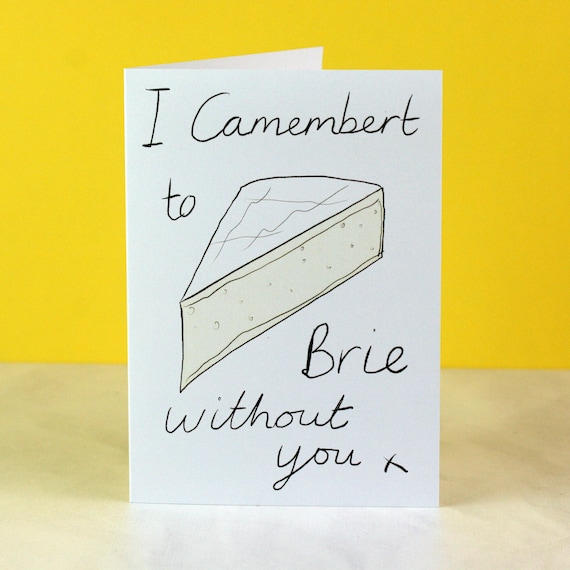 I Camembert
to
Brie
without
you x